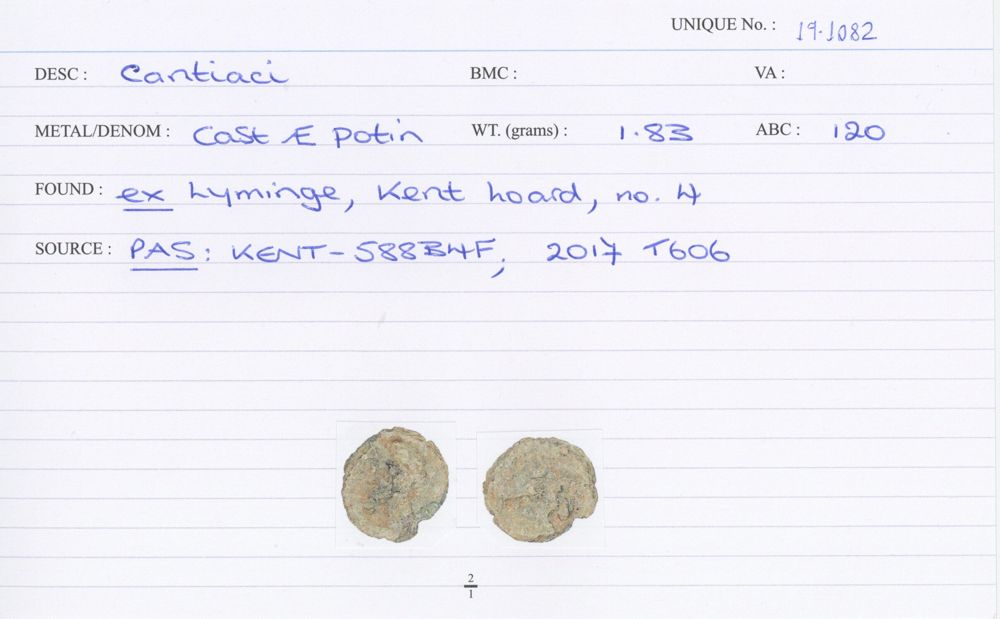 UNIQUE No. : 19.1082
DESC : Cantiaci BMC : VA :
METAL/DENOM : Cast Æ Potin WT. (grams) : 1.83 ABC : 120
FOUND : ex Lyminge, Kent hoard, no. 4
SOURCE : PAS: KENT-588B4F, 2017 T606
2
1